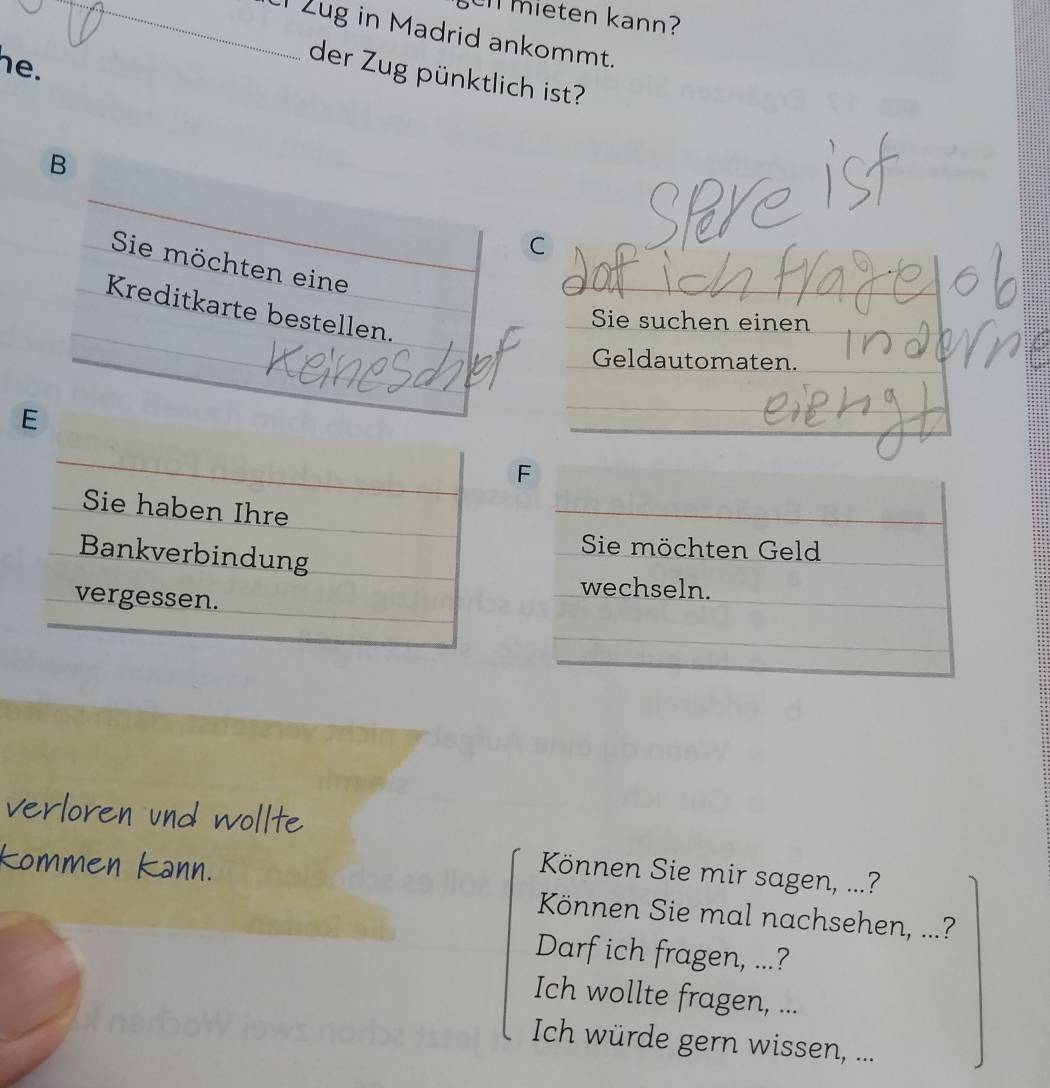 mieten kann?
Zug in Madrid ankommt.
der Zug pünktlich ist?
he.
B
Sie möchten eine
Kreditkarte bestellen.
C
ist
ich frage ob
Sie suchen einen
Geldautomaten.
E
Sie haben Ihre
Bankverbindung
vergessen.
F
Sie möchten Geld
wechseln.
verloren und wollte
kommen kann.
Können Sie mir sagen, ...?
Können Sie mal nachsehen, ...?
Darf ich fragen, ...?
Ich wollte fragen, ...
Ich würde gern wissen, ...